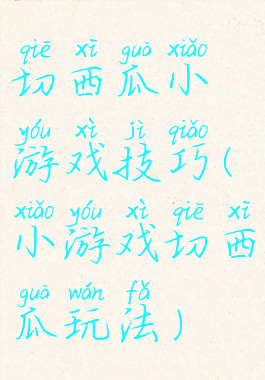 qiē xī guā xiǎo
切西瓜小
yóu xì jì qiǎo
游戏技巧(
xiǎo yóu xì qiē xī
小游戏切西
guā wán fǎ
瓜玩法)